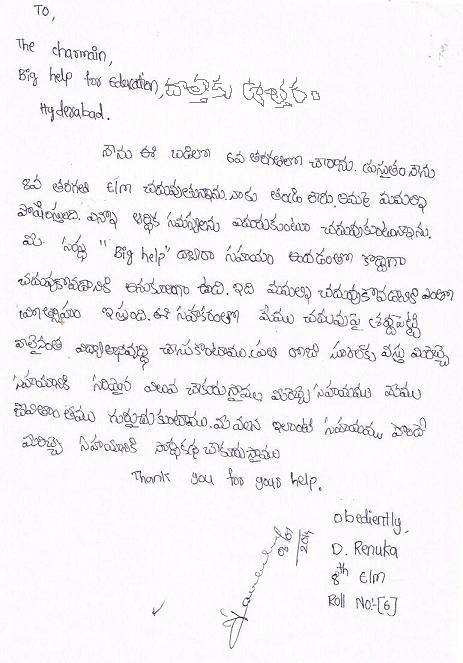 TO,
The charmain,
Big help for Education, దాతకు ఉత్తరం.
Hyderabad.
నేను ఈ బడిలో 6వ తరగతిలో చేరాను. ప్రస్తుతం నేను
8వ తరగతి E/m చదువుతున్నాను. నాకు తండ్రి లేరు, అమ్మే మమల్ని
పోషిస్తుంది. ఎన్నో ఆర్థిక సమస్యలను ఎదురుకుంటూ చదువుకుంటున్నాను.
మీ సంస్థ "Big help" ద్వారా సహాయం అందడంతో కొద్దిగా
చదువుకోవడానికి అనుకూలంగా ఉంది. ఇది మమల్ని చదువుకోవడానికి ఎంతో
ప్రోత్సాహం ఇస్తుంది. ఈ సహకారంతో మేము చదువుపై శ్రద్దపెట్టి
విద్యాభివృద్ధి చేసుకొంటాము. ప్రతి రోజు స్కూలుకు వస్తు మీరిచ్చే
సహాయానికి సరియైన విలువ చేకూరుస్తాము. మీరిచ్చే సహాయము మేము
జీవితాంతము గుర్తుంచుకుంటాము. మీ వలన ఇలాంటి సహాయము పొంది
మీరిచ్చే సహాయానికి సార్థకత చేకూరుస్తాము
Thank you for your help.
obediently,
D. Renuka
8th E/m
Roll No:-[6]